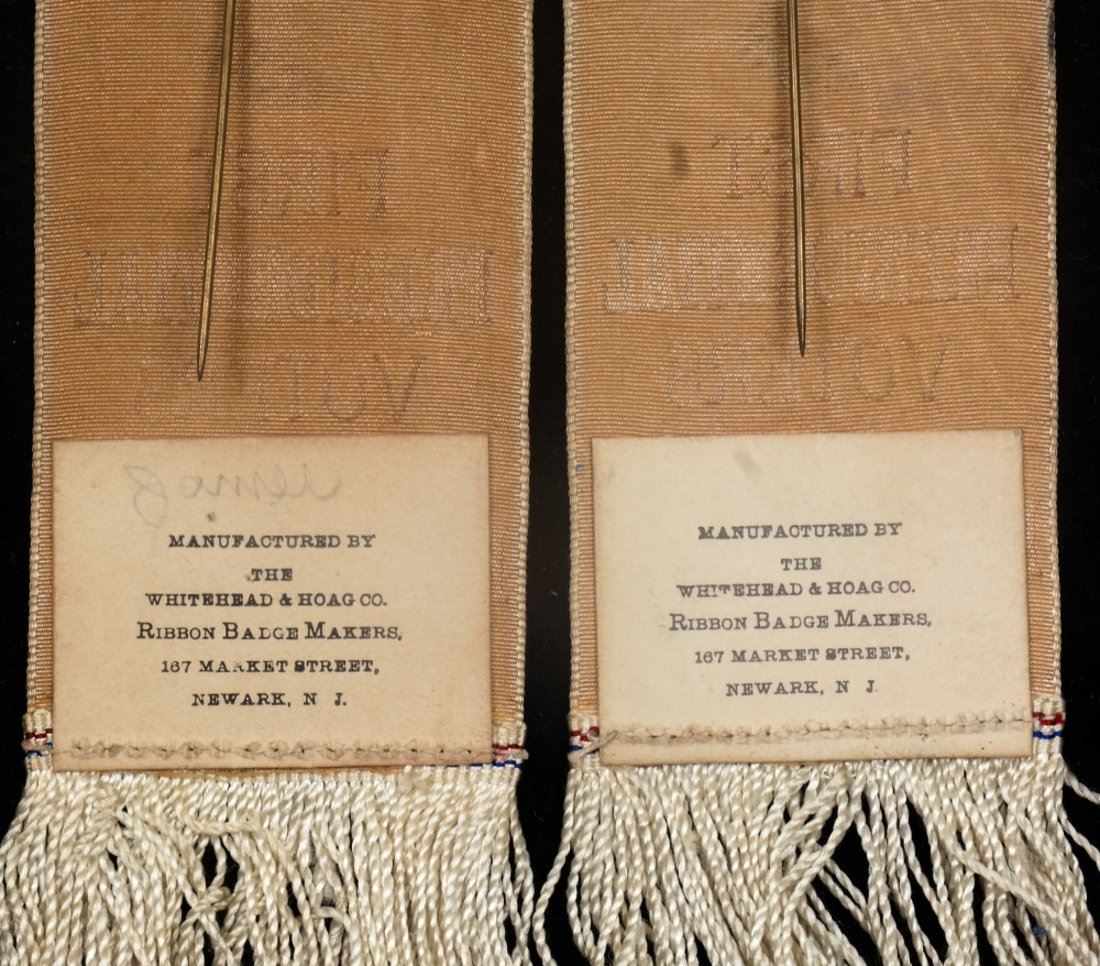 FIRST
PRESIDENTIAL
VOTERS
MANUFACTURED BY
THE
WHITEHEAD & HOAG CO.
RIBBON BADGE MAKERS,
167 MARKET STREET,
NEWARK, N J.
FIRST
PRESIDENTIAL
VOTERS
MANUFACTURED BY
THE
WHITEHEAD & HOAG CO.
RIBBON BADGE MAKERS,
167 MARKET STREET,
NEWARK, N J.